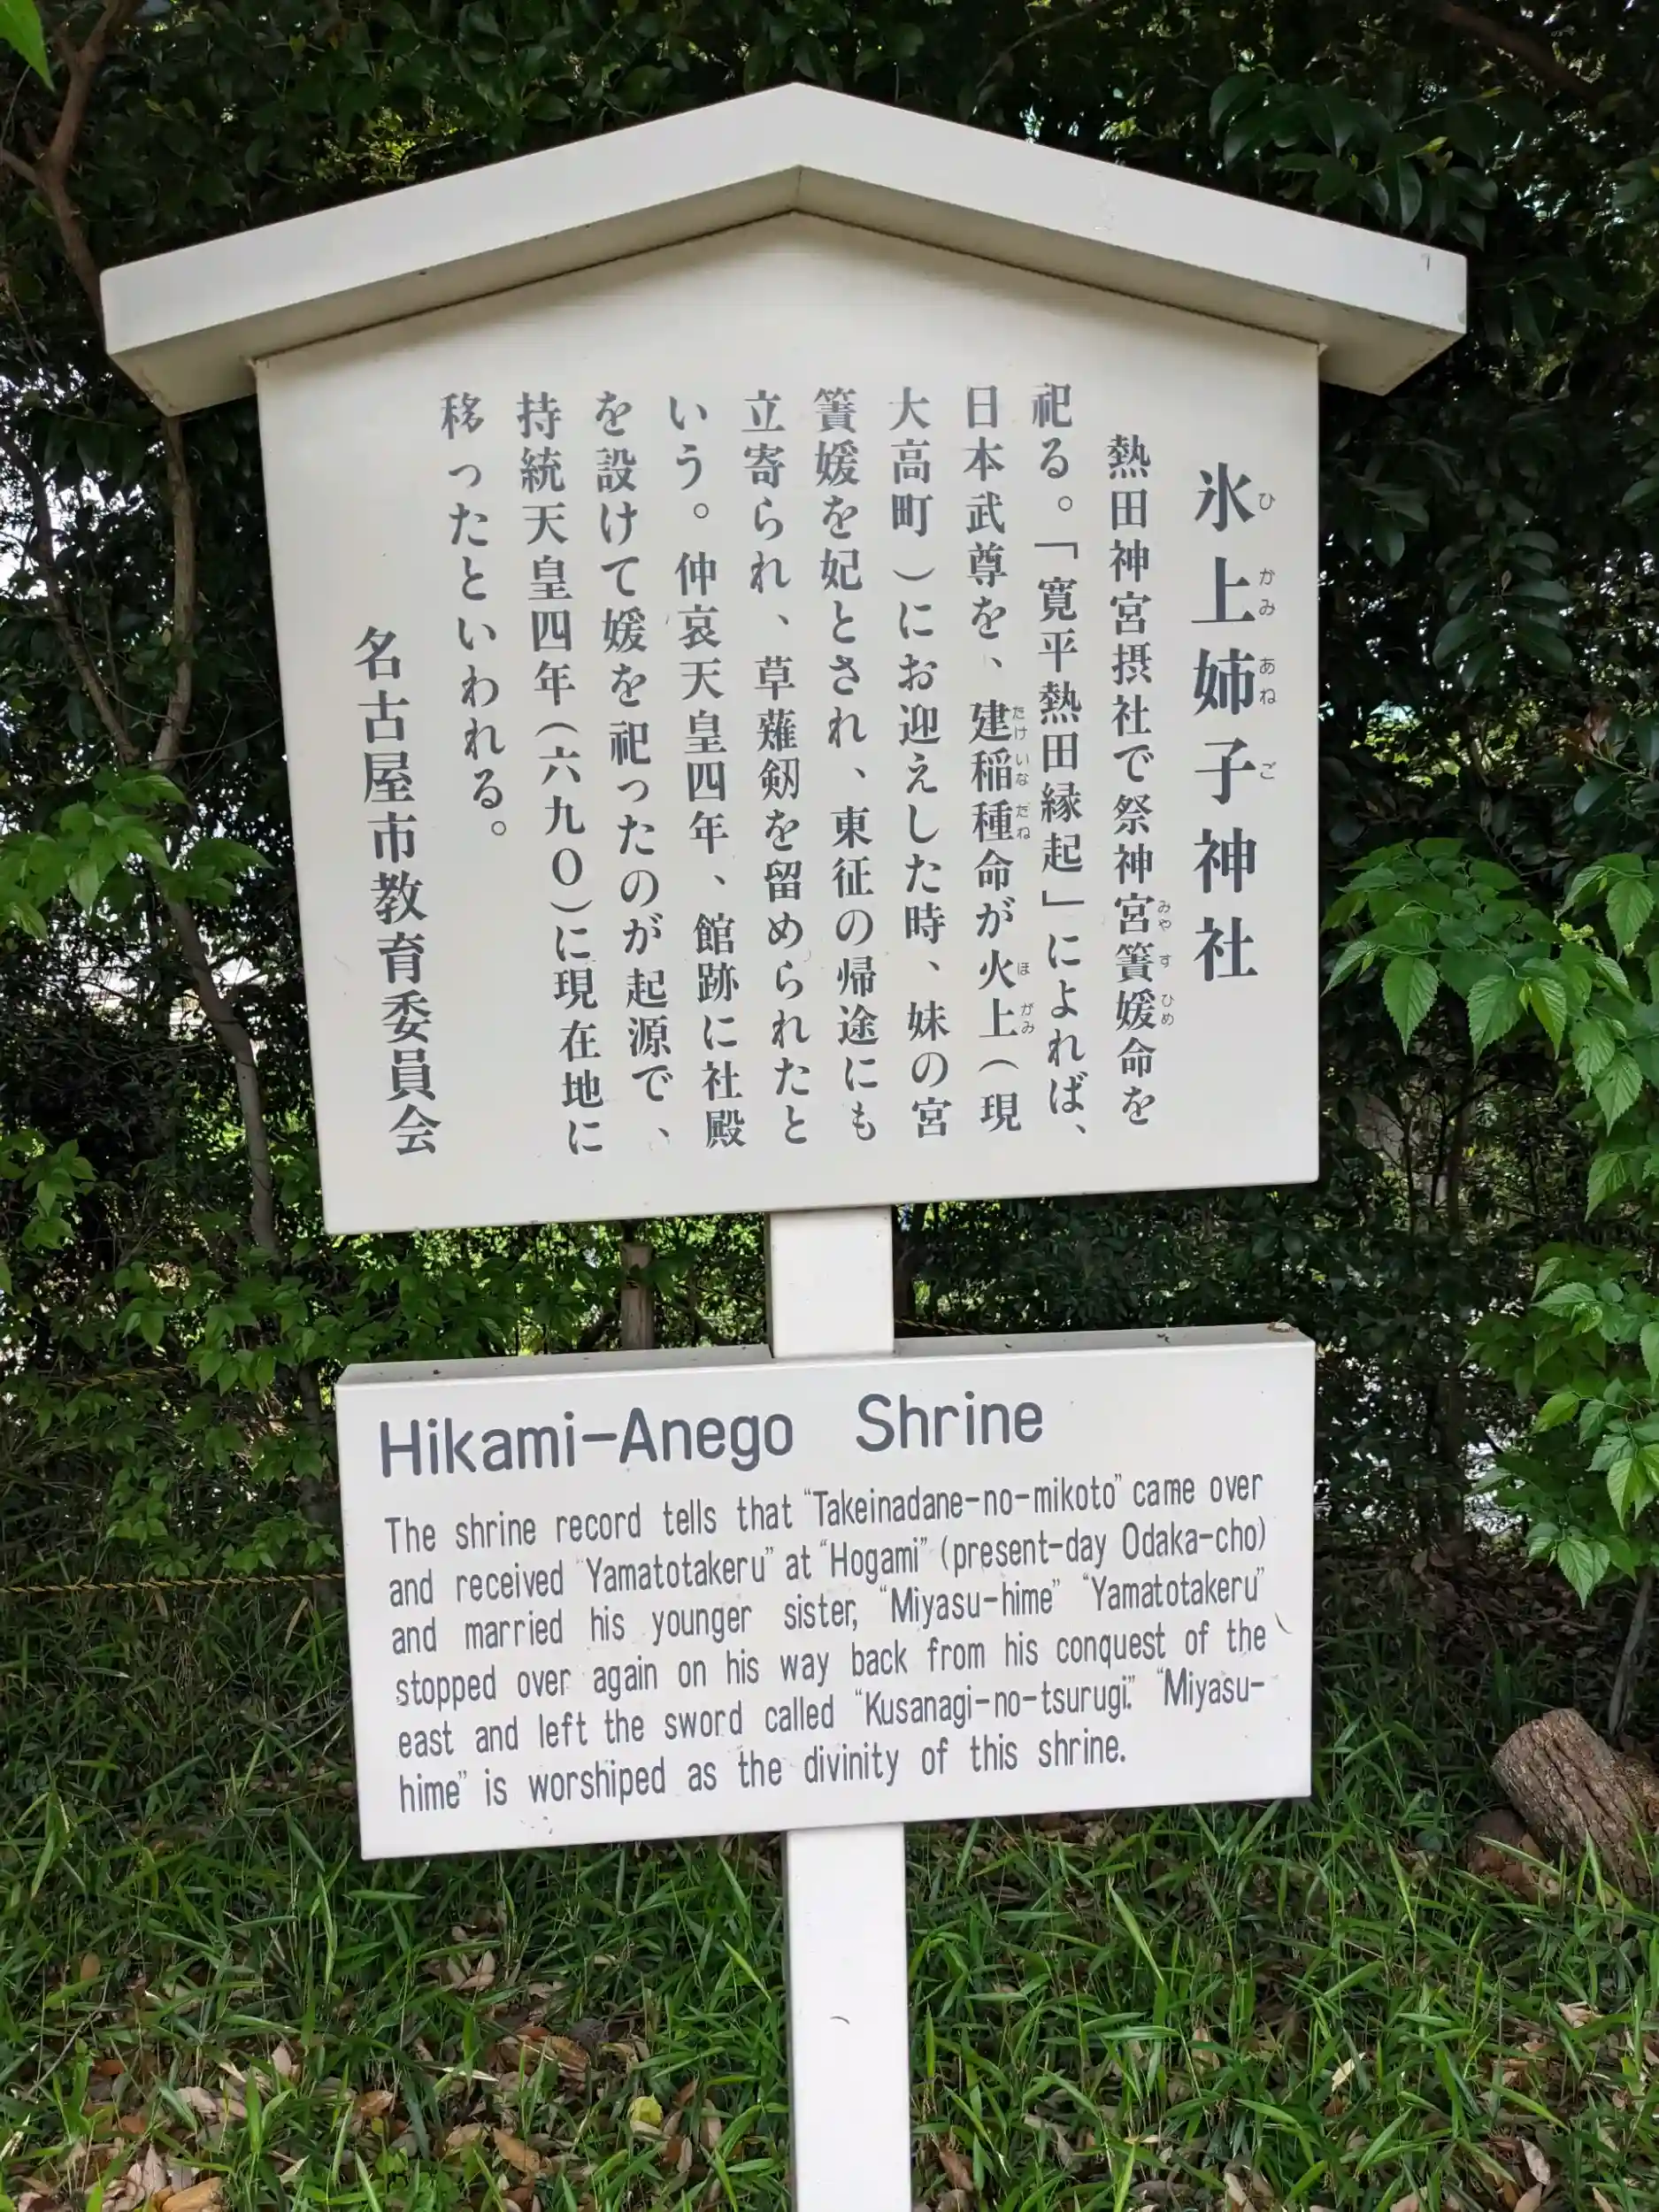 氷上姉子神社
熱田神宮摂社で祭神宮簀媛命を
祀る。「寛平熱田縁起」によれば、
日本武尊を、建稲種命が火上(現
大高町)にお迎えした時、妹の宮
簀媛を妃とされ、東征の帰途にも
立寄られ、草薙剣を留められたと
いう。仲哀天皇四年、館跡に社殿
を設けて媛を祀ったのが起源で、
持統天皇四年(六九〇)に現在地に
移ったといわれる。
名古屋市教育委員会
Hikami-Anego Shrine
The shrine record tells that "Takeinadane-no-mikoto" came over
and received "Yamatotakeru" at "Hogami" (present-day Odaka-cho)
and married his younger sister, "Miyasu-hime" "Yamatotakeru"
stopped over again on his way back from his conquest of the
east and left the sword called "Kusanagi-no-tsurugi." "Miyasu-
hime" is worshiped as the divinity of this shrine.